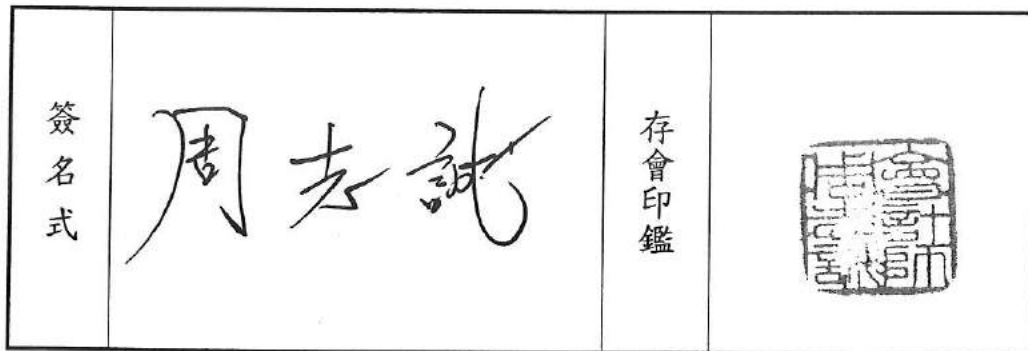 簽名式
周志誠
存會印鑑
會計師